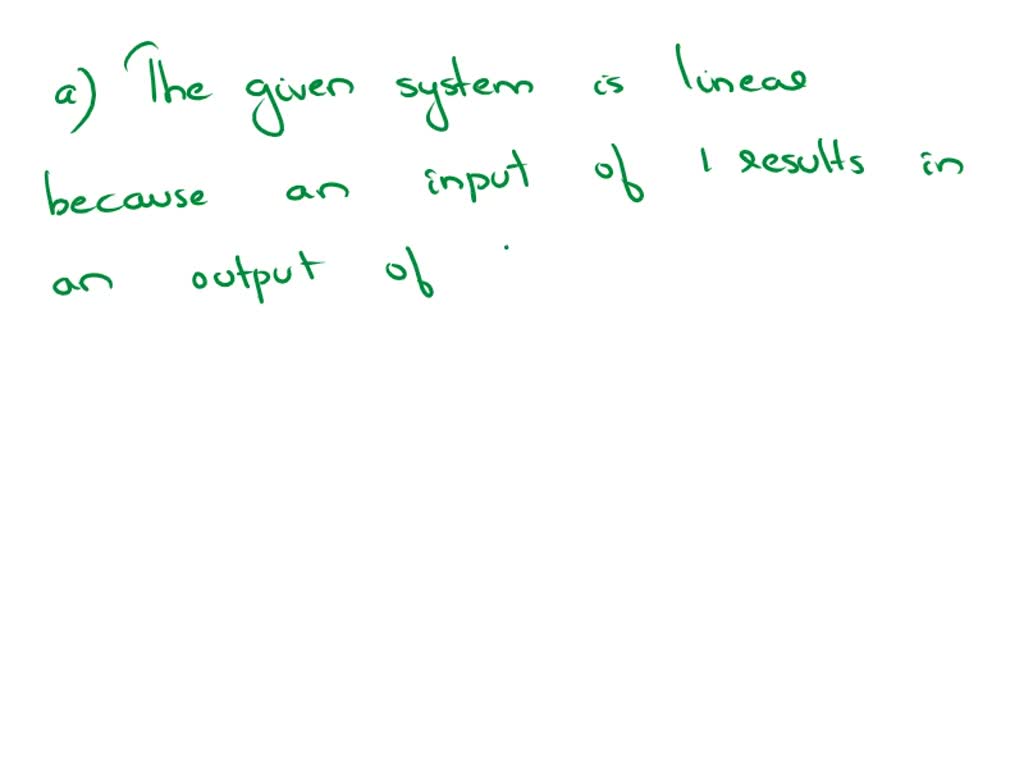 a) The given system is linear
because an input of 1 results in
an output of